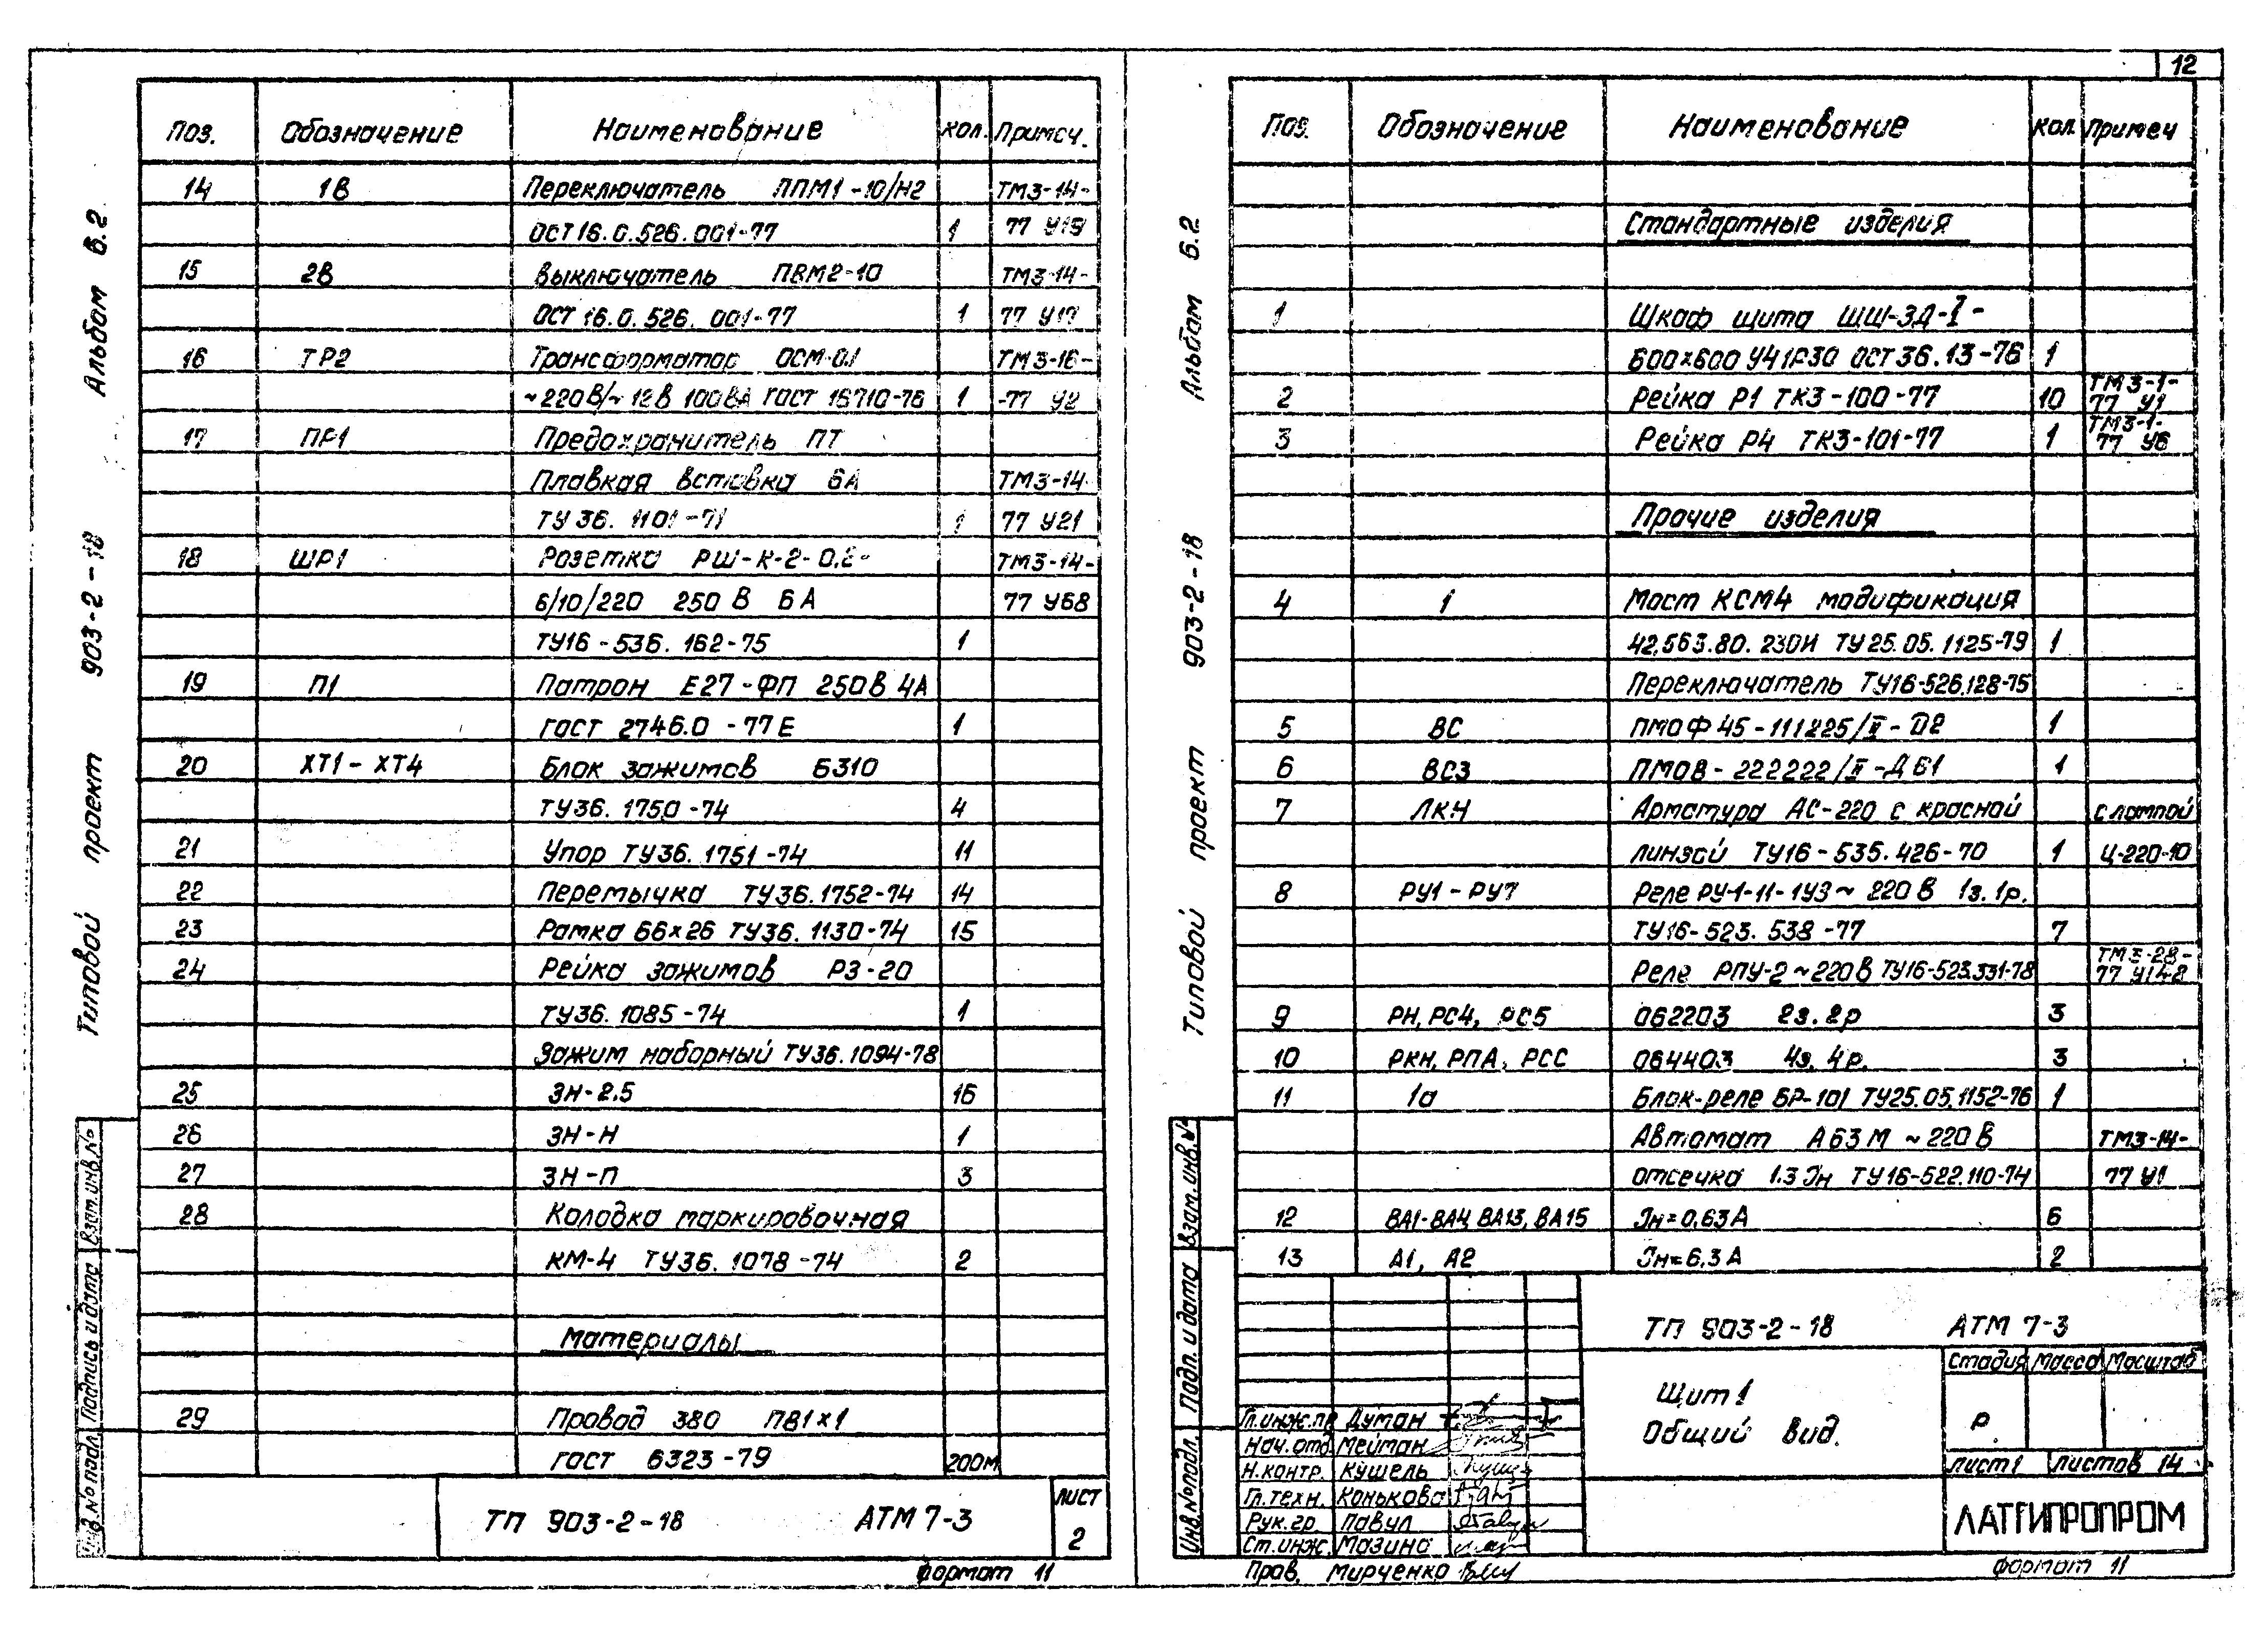 12
Альбом 6.2
Типовой проект 903-2-18
Поз. Обозначение Наименование Кол. Примеч.
14 1В Переключатель ППМ1-10/Н2 ТМ3-14-
ОСТ 16.0.526.001-77 1 77 У19
15 2В Выключатель ПВМ2-10 ТМ3-14-
ОСТ 16.0.526.001-77 1 77 У17
16 ТР2 Трансформатор ОСМ-0.1 ТМ3-16-
~220В/~12В 100ВА ГОСТ 16710-76 1 -77 У2
17 ПР1 Предохранитель ПТ
Плавкая вставка 6А ТМ3-14-
ТУ 36.1101-71 1 77 У21
18 ШР1 Розетка РШ-К-2-0.2- ТМ3-14-
6/10/220 250 В 6А 77 У68
ТУ16-536.162-75 1
19 П1 Патрон Е27-ФП 250В 4А
ГОСТ 2746.0-77Е 1
20 ХТ1-ХТ4 Блок зажимов Б310
ТУ36.1750-74 4
21 Упор ТУ36.1751-74 11
22 Перемычка ТУ36.1752-74 14
23 Рамка 66×26 ТУ36.1130-74 15
24 Рейка зажимов РЗ-20
ТУ36.1085-74 1
Зажим наборный ТУ36.1094-78
25 ЗН-2.5 16
26 ЗН-Н 1
27 ЗН-П 3
28 Колодка маркировочная
КМ-4 ТУ36.1078-74 2
Материалы
29 Провод 380 ПВ1×1
ГОСТ 6323-79 200м
ТП 903-2-18 АТМ 7-3 Лист
2
Формат 11
Инв.№ подл. Подпись и дата Взам.инв.№
Альбом 6.2
Типовой проект 903-2-18
Поз. Обозначение Наименование Кол. Примеч
Стандартные изделия
1 Шкаф щита ЩШ-ЗД-I-
600×600 У4 IP30 ОСТ 36.13-76 1
2 Рейка Р1 ТК3-100-77 10 ТМ3-1-
77 У1
3 Рейка Р4 ТК3-101-77 1 ТМ3-1-
77 У6
Прочие изделия
4 1 Мост КСМ4 модификация
42.563.80.230И ТУ 25.05.1125-79 1
Переключатель ТУ16-526.128-75
5 ВС ПМОФ 45-111225/II-Д2 1
6 ВС3 ПМОВ-222222/II-Д61 1
7 ЛКН Арматура АС-220 с красной с лампой
линзой ТУ16-535.426-70 1 Ц-220-10
8 РУ1-РУ7 Реле РУ-1-11-1У3~220В 1з.1р.
ТУ16-523.538-77 7
Реле РПУ-2~220В ТУ16-523.331-78 ТМ3-28-
77 У148
9 РН, РС4, РС5 062203 2з.2р 3
10 РКН, РПА, РСС 064403 4з.4р. 3
11 1а Блок-реле БР-101 ТУ25.05.1152-76 1
Автомат А63М ~220В ТМ3-14-
отсечка 1.3 Jн ТУ16-522.110-74 77 У1
12 ВА1-ВА4, ВА13, ВА15 Jн=0.63А 6
13 А1, А2 Jн=6.3А 2
ТП 903-2-18 АТМ 7-3
Щит 1
Общий вид.
Стадия Масса Масштаб
Р
Лист 1 Листов 14
ЛАТГИПРОПРОМ
Гл.инж.пр Думан
Нач.отд Мейман
Н.контр. Кушель
Гл.техн. Конькова
Рук.гр. Павул
Ст.инж. Мазина
Пров. Мирченко
Инв.№ подл. Подп. и дата Взам.инв.№
Формат 11